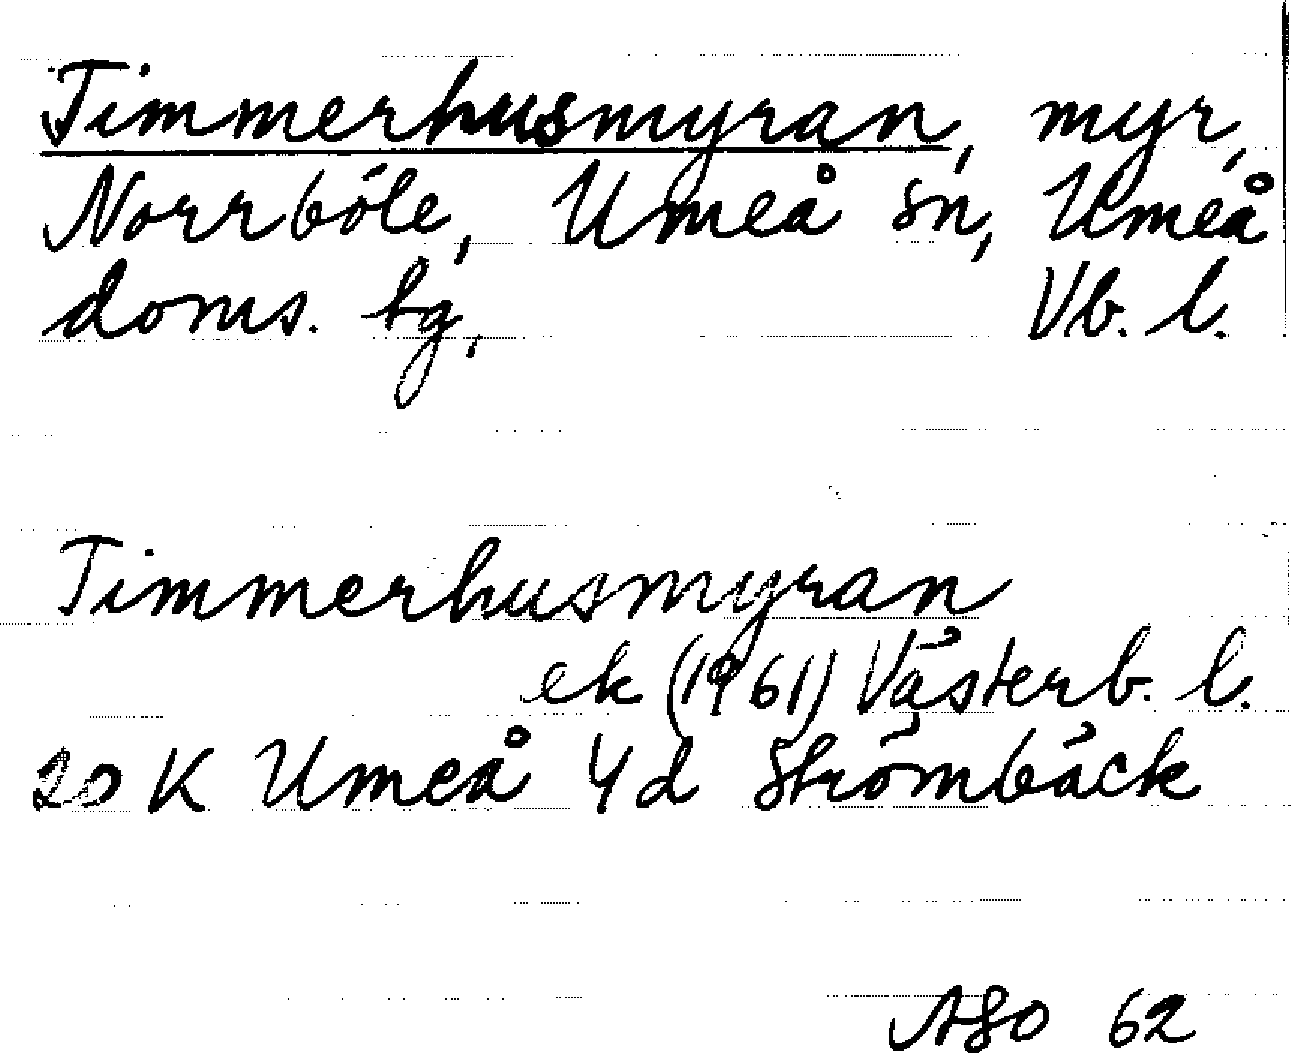 Timmerhusmyran, myr,
Norrböle, Umeå sn, Umeå
doms. tg, Vb. l.
Timmerhusmyran
ek (1961) Västerb. l.
20 K Umeå 4d Strömbäck
ASO 62